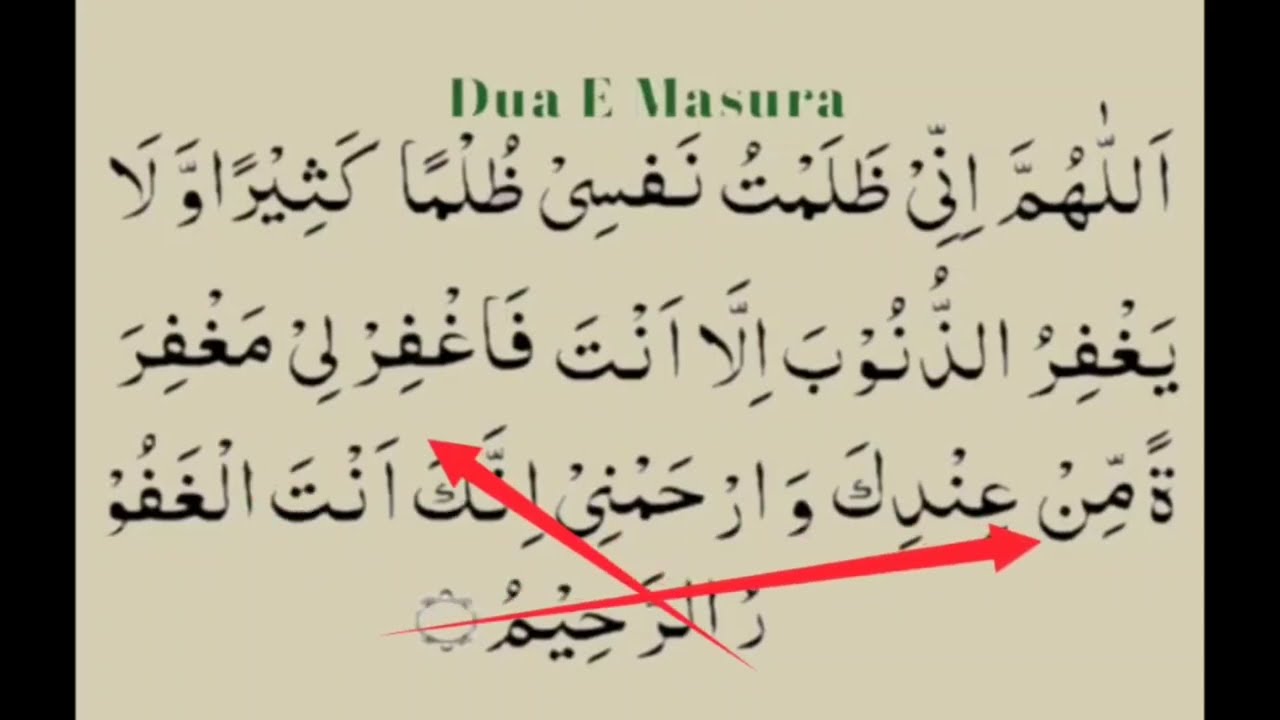 Dua E Masura
اَللّٰهُمَّ اِنِّیْ ظَلَمْتُ نَفْسِیْ ظُلْمًا كَثِیْرًا وَّ لَا
یَغْفِرُ الذُّنُوْبَ اِلَّا اَنْتَ فَاغْفِرْ لِیْ مَغْفِرَ
ةً مِّنْ عِنْدِكَ وَ ارْحَمْنِیْ اِنَّكَ اَنْتَ الْغَفُوْ
رُ الرَّحِیْمُ